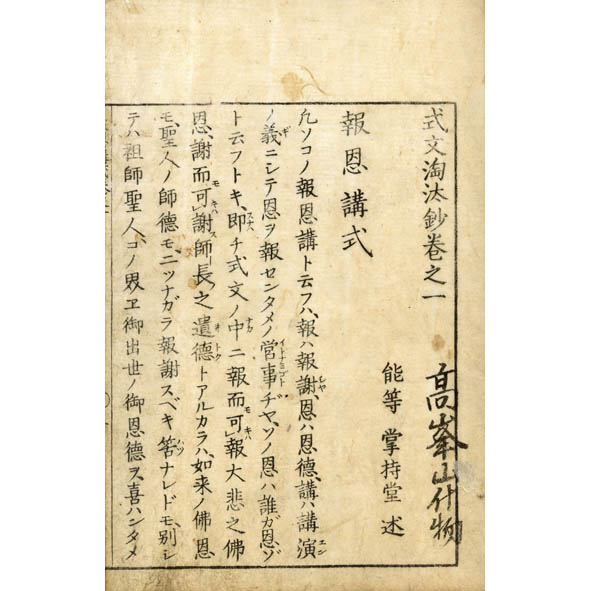 式文淘汰鈔巻之一
髙峯山什物
能等 掌持堂 述
報恩講式
凡ソコノ報恩講ト云フハ、報ハ報謝、恩ハ恩德、講ハ講演
ノ義ニシテ恩ヲ報センタメノ営事ヂヤ、ソノ恩ハ誰ガ恩ゾ
ト云フトキ、即チ式文ノ中ニ報而可報大悲之佛
恩、謝而可謝師長之遺德トアルカラハ、如来ノ佛恩
モ、聖人ノ師德モニツナガラ報謝スベキ筈ナレドモ、別シ
テハ祖師聖人、コノ界ヱ御出世ノ御恩德ヲ、喜ハンタメ